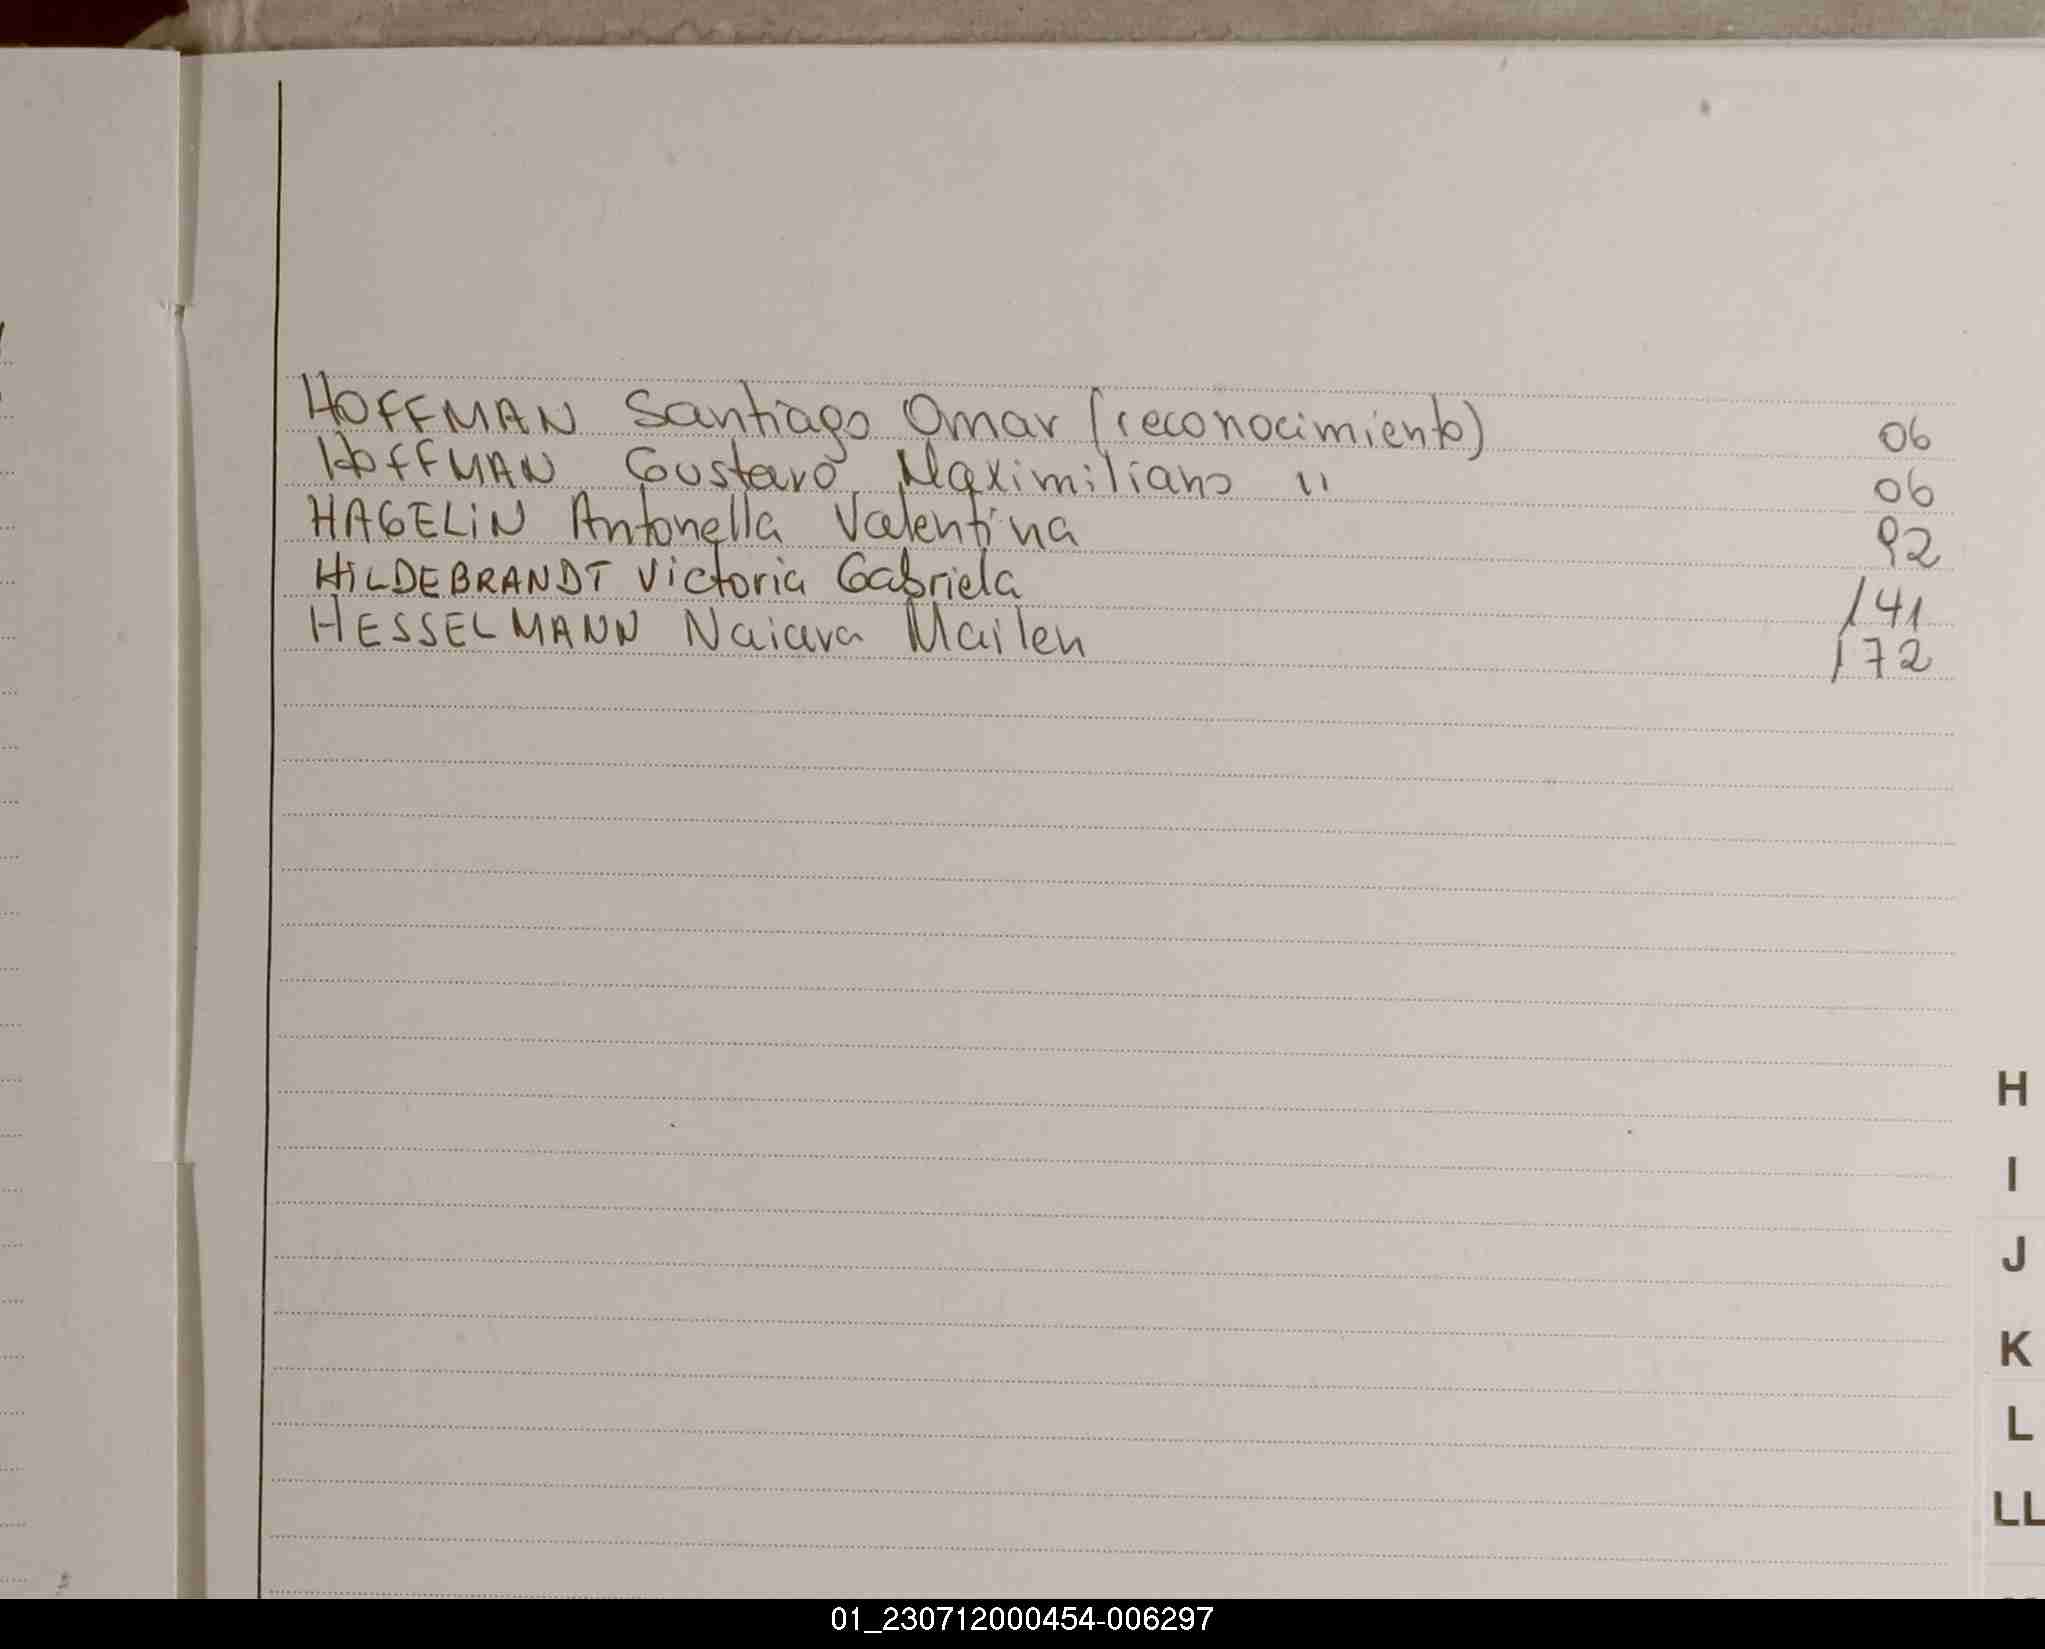 HOFFMAN Santiago Omar (reconocimiento) 06
HOFFMAN Gustavo Maximiliano " 06
HAGELIN Antonella Valentina 92
HILDEBRANDT Victoria Gabriela 141
HESSELMANN Naiara Mailen 172
H
I
J
K
L
LL
01_230712000454-006297